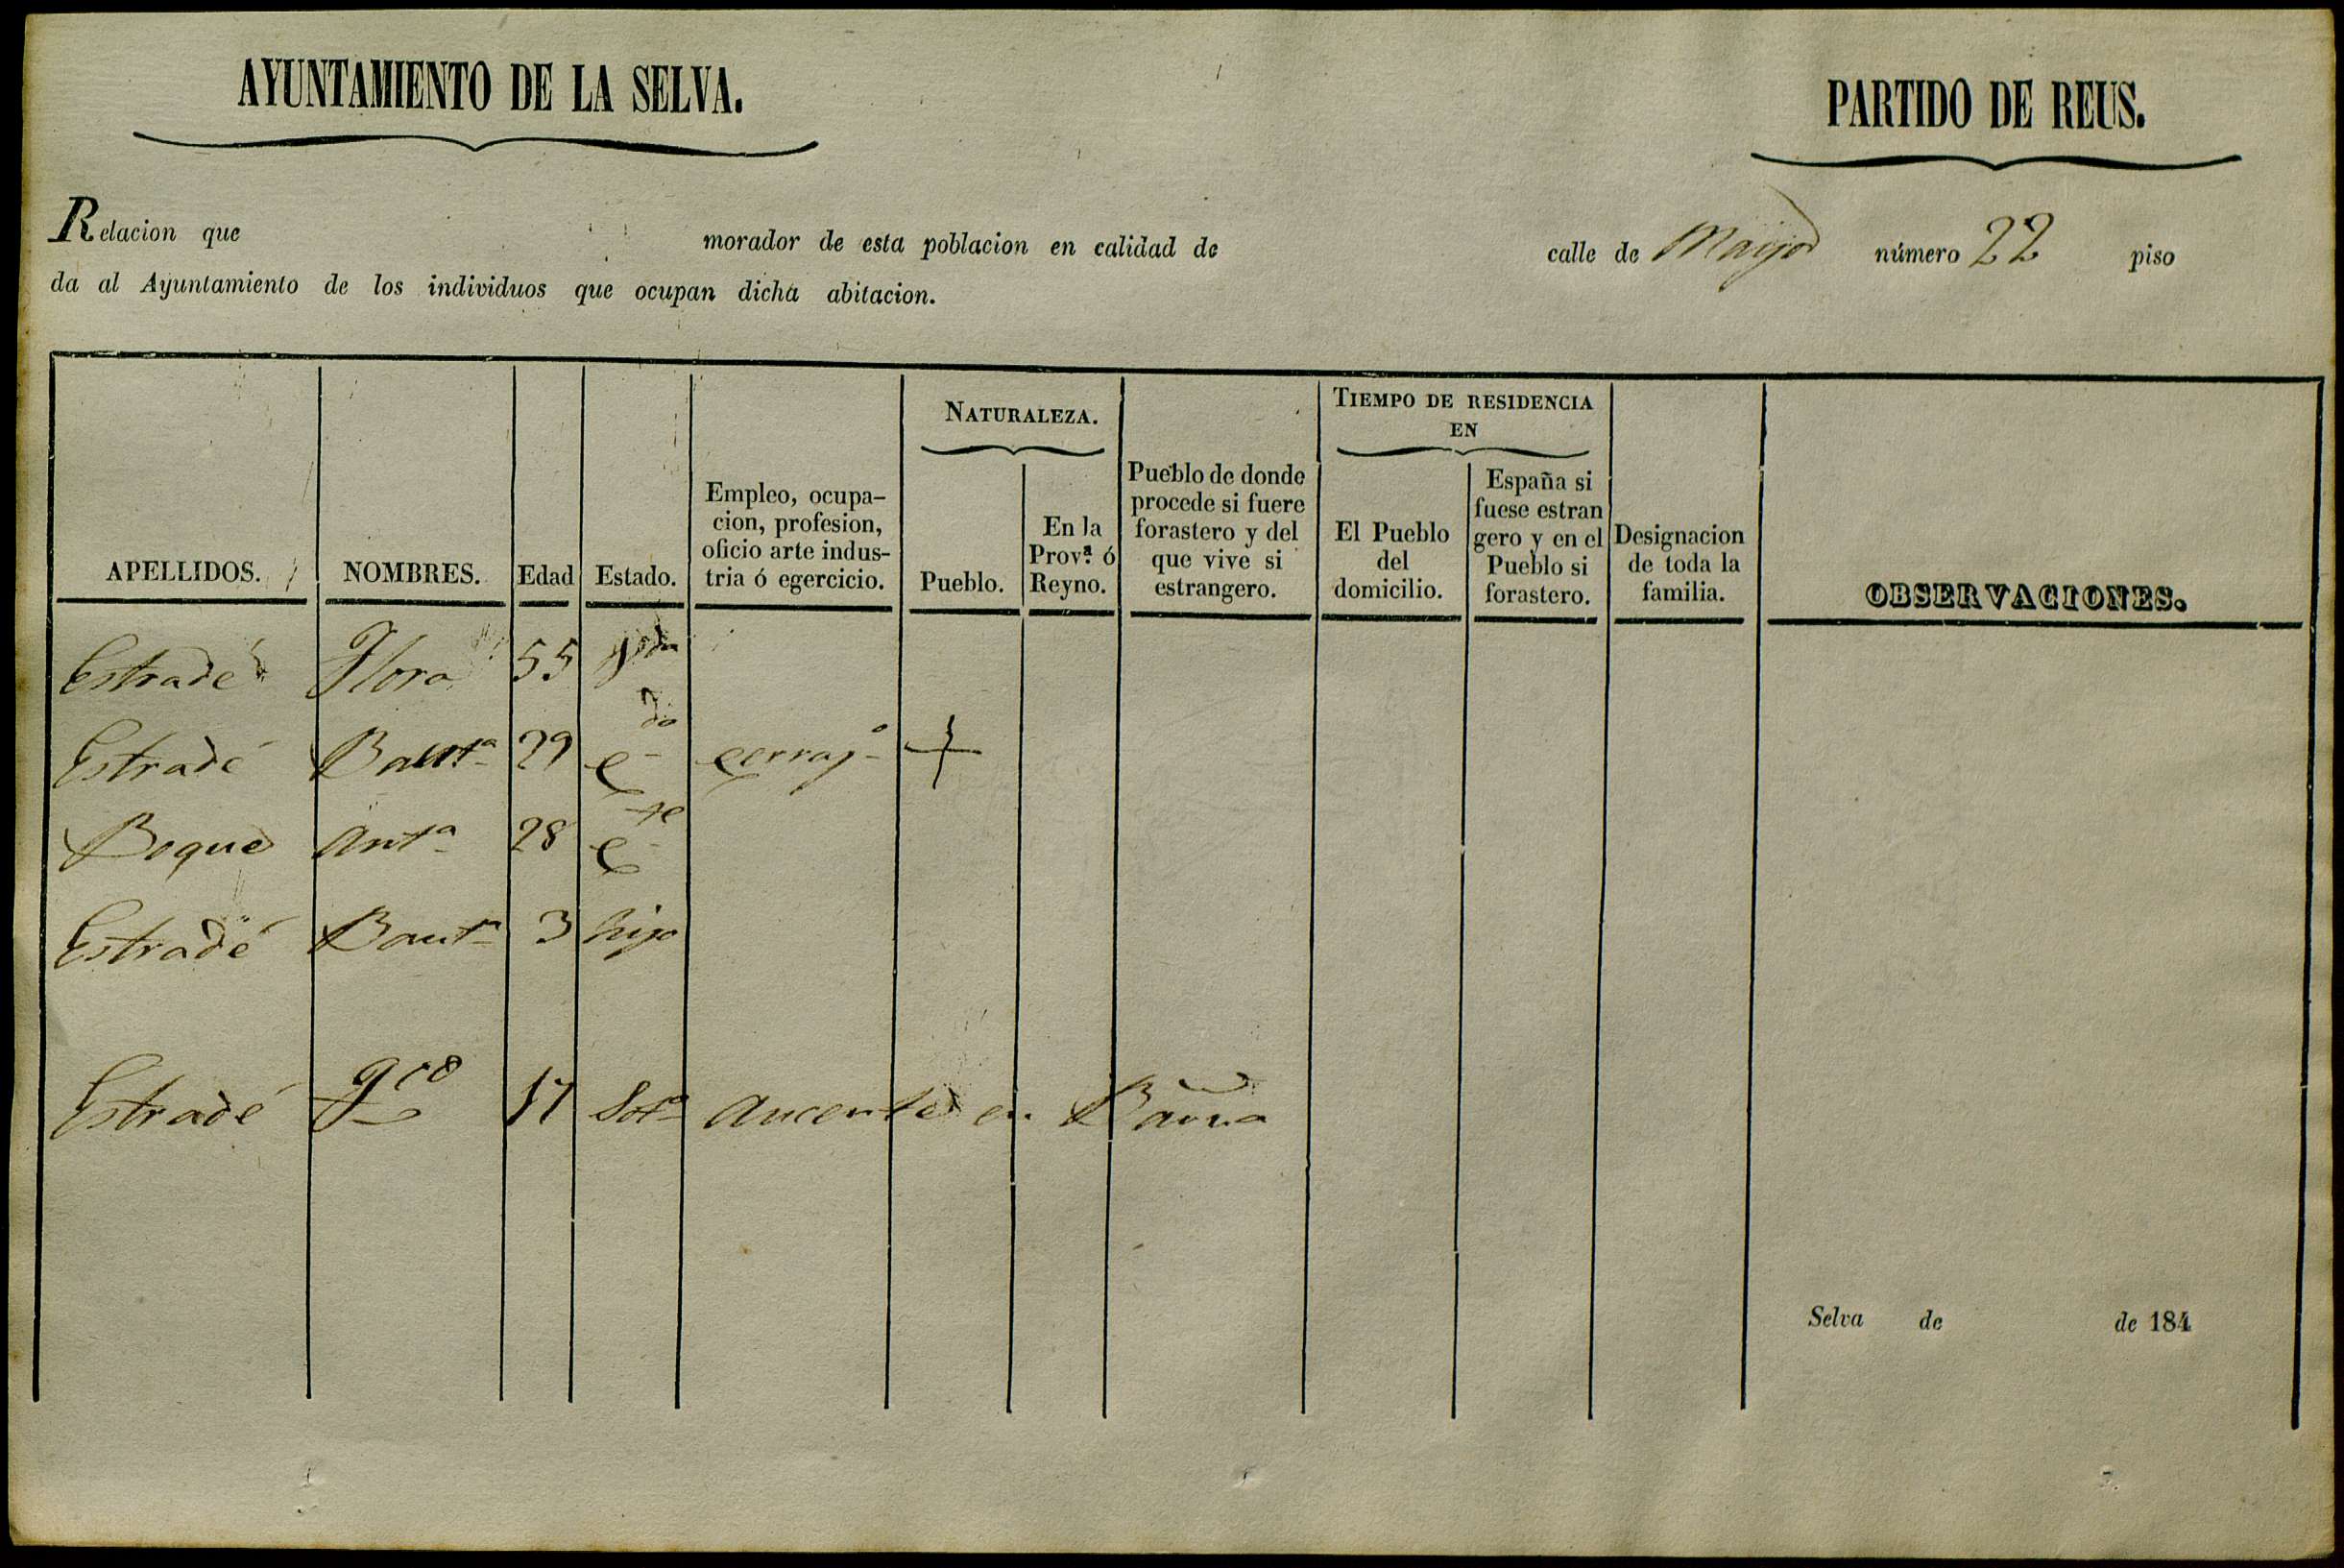 AYUNTAMIENTO DE LA SELVA.
PARTIDO DE REUS.
Relacion que morador de esta poblacion en calidad de calle de Mayor número 22 piso
da al Ayuntamiento de los individuos que ocupan dicha abitacion.
NATURALEZA.
TIEMPO DE RESIDENCIA
EN
APELLIDOS.
NOMBRES.
Edad
Estado.
Empleo, ocupa-
cion, profesion,
oficio arte indus-
tria ó egercicio.
Pueblo.
En la
Prov.ª ó
Reyno.
Pueblo de donde
procede si fuere
forastero y del
que vive si
estrangero.
El Pueblo
del
domicilio.
España si
fuese estran
gero y en el
Pueblo si
forastero.
Designacion
de toda la
familia.
OBSERVACIONES.
Estradé Flora 55
Estradé Bautª 29 cerrajº
Boque Antª 28
Estradé Bautª 3 hijo
Estradé 17 Solº Aucente en Barna
Selva de de 184